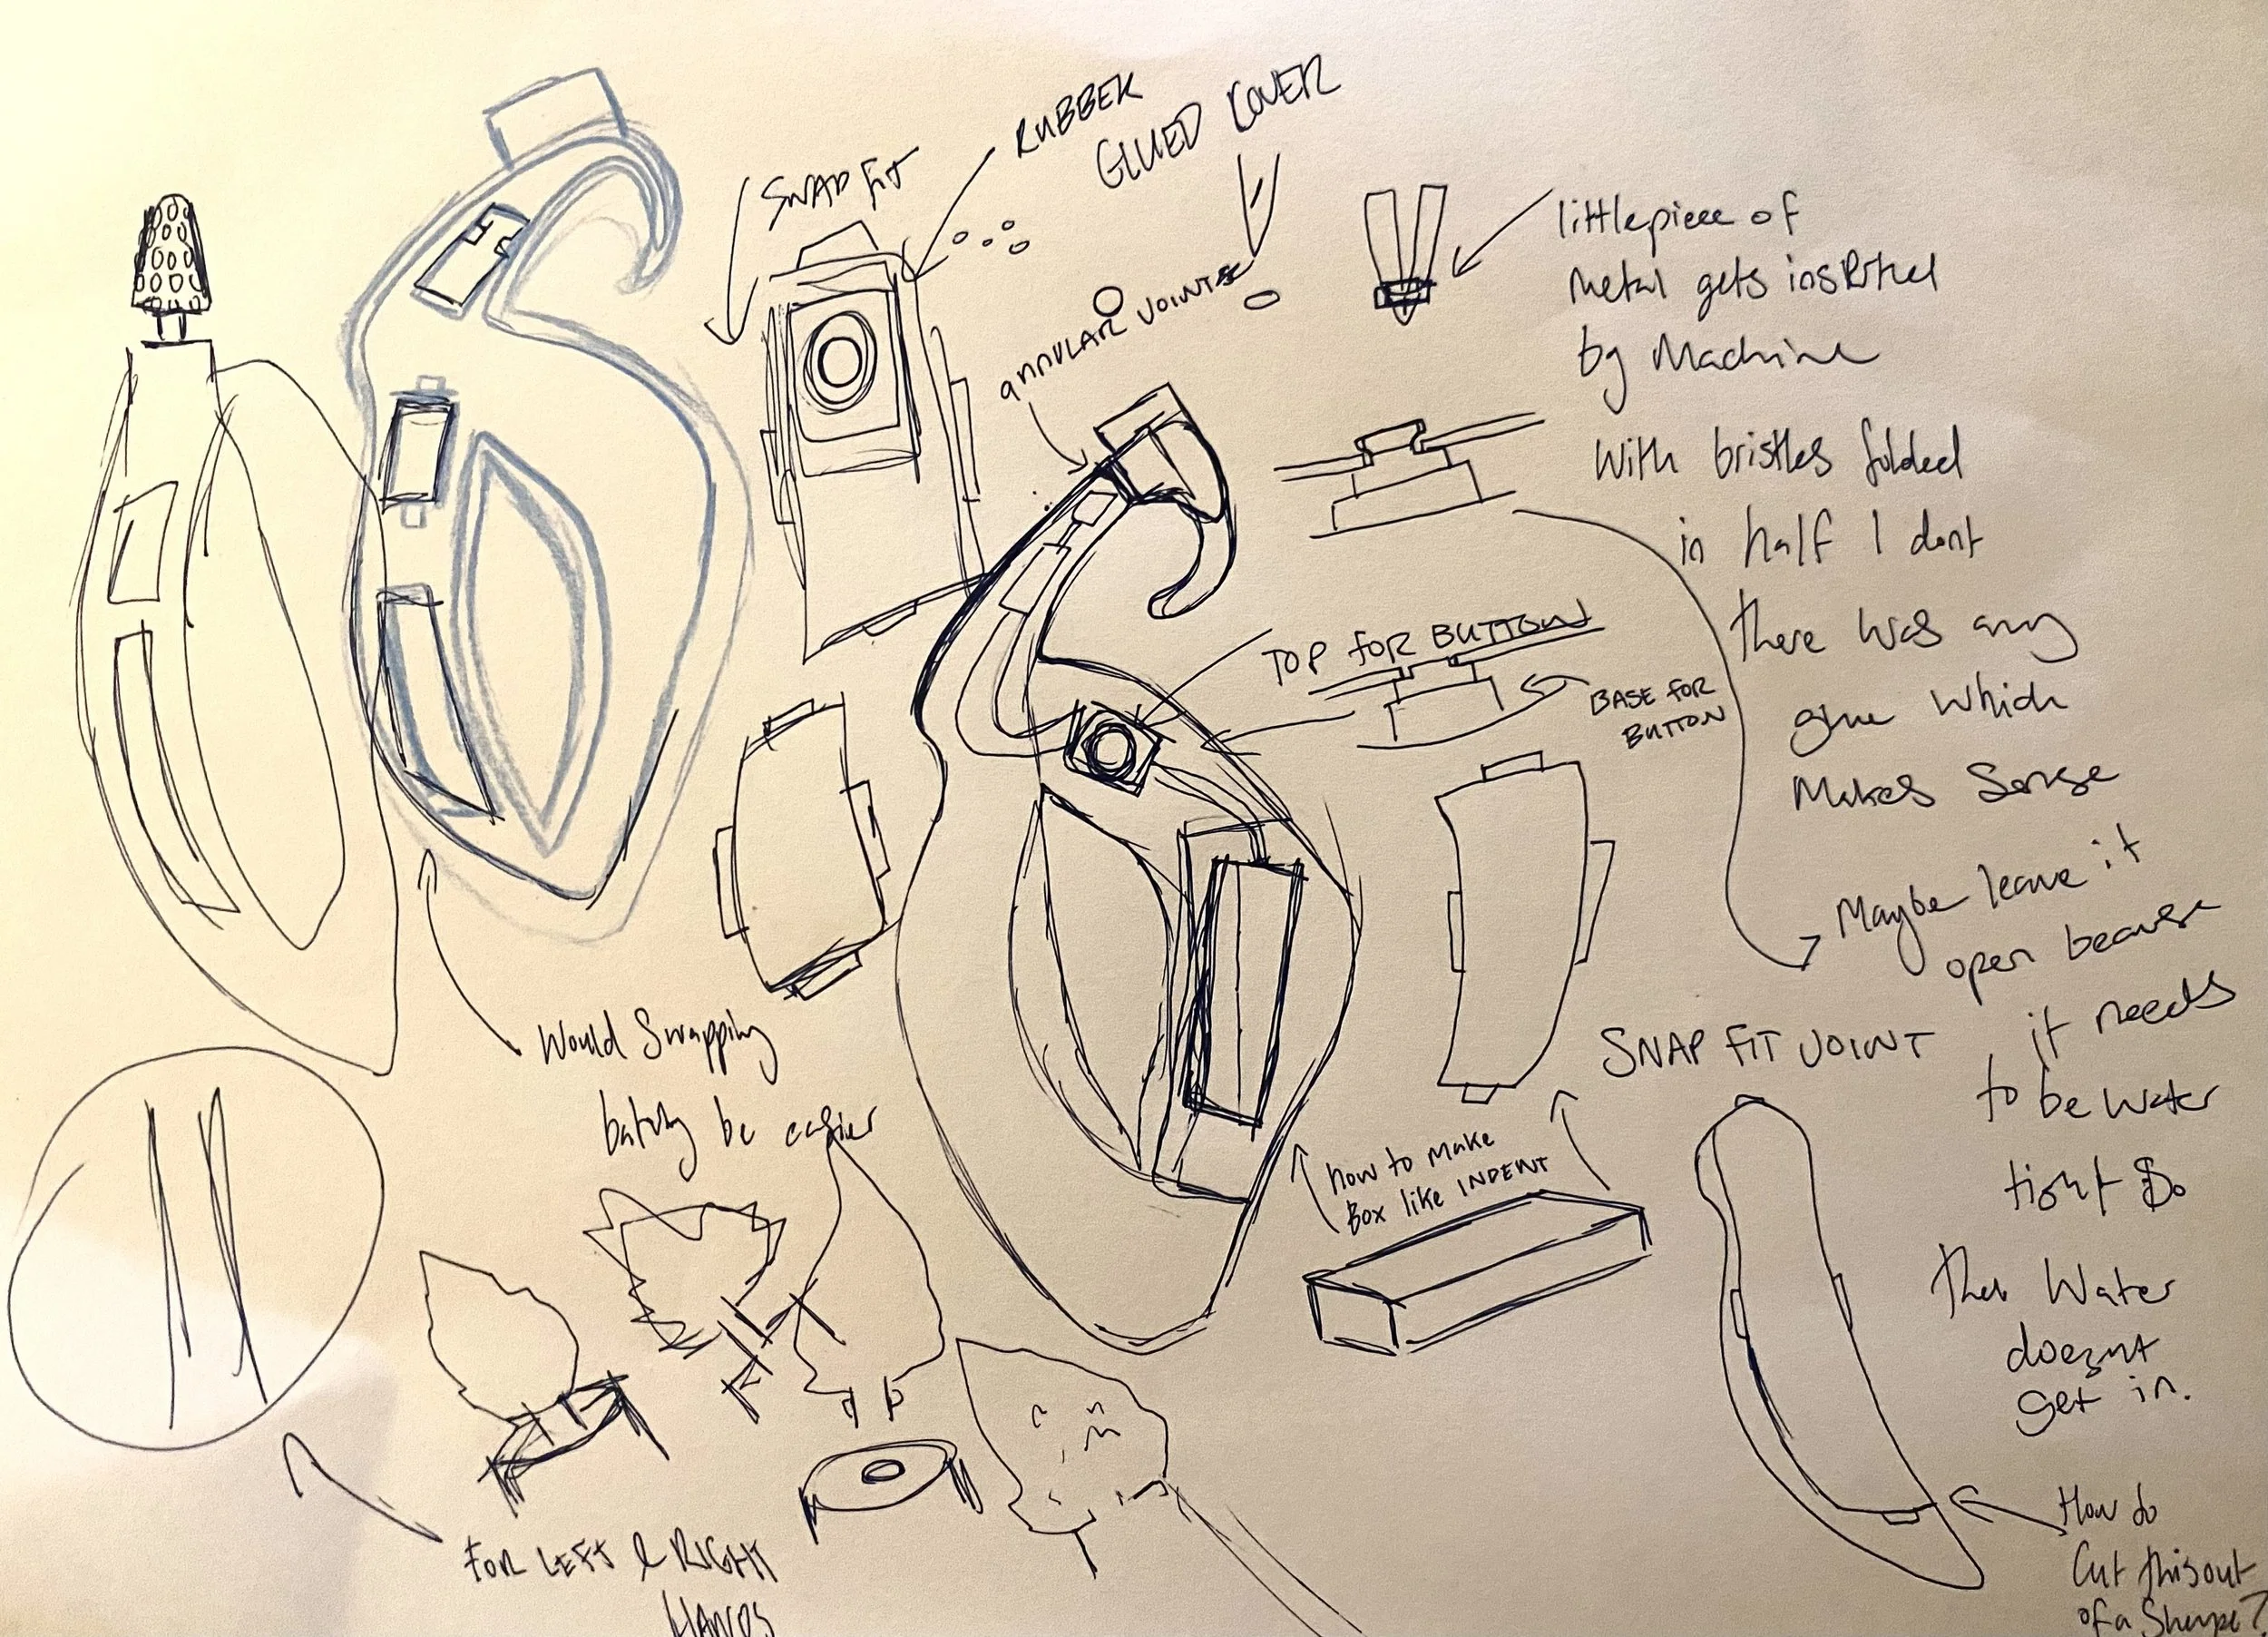 SNAP FIT
RUBBER
GLUED COVER
annular joints
little piece of
metal gets inserted
by Machine
With bristles folded
in half I dont
there was any
glue which
Makes Sense
TOP FOR BUTTON
BASE FOR
BUTTON
Maybe leave it
open because
it needs
to be water
tight So
the Water
doesnt
get in.
Would Swapping
be easier
SNAP FIT JOINT
how to make
Box like INDENT
FOR LEFT & RIGHT
HANDS
How do
Cut this out
of a Shape?